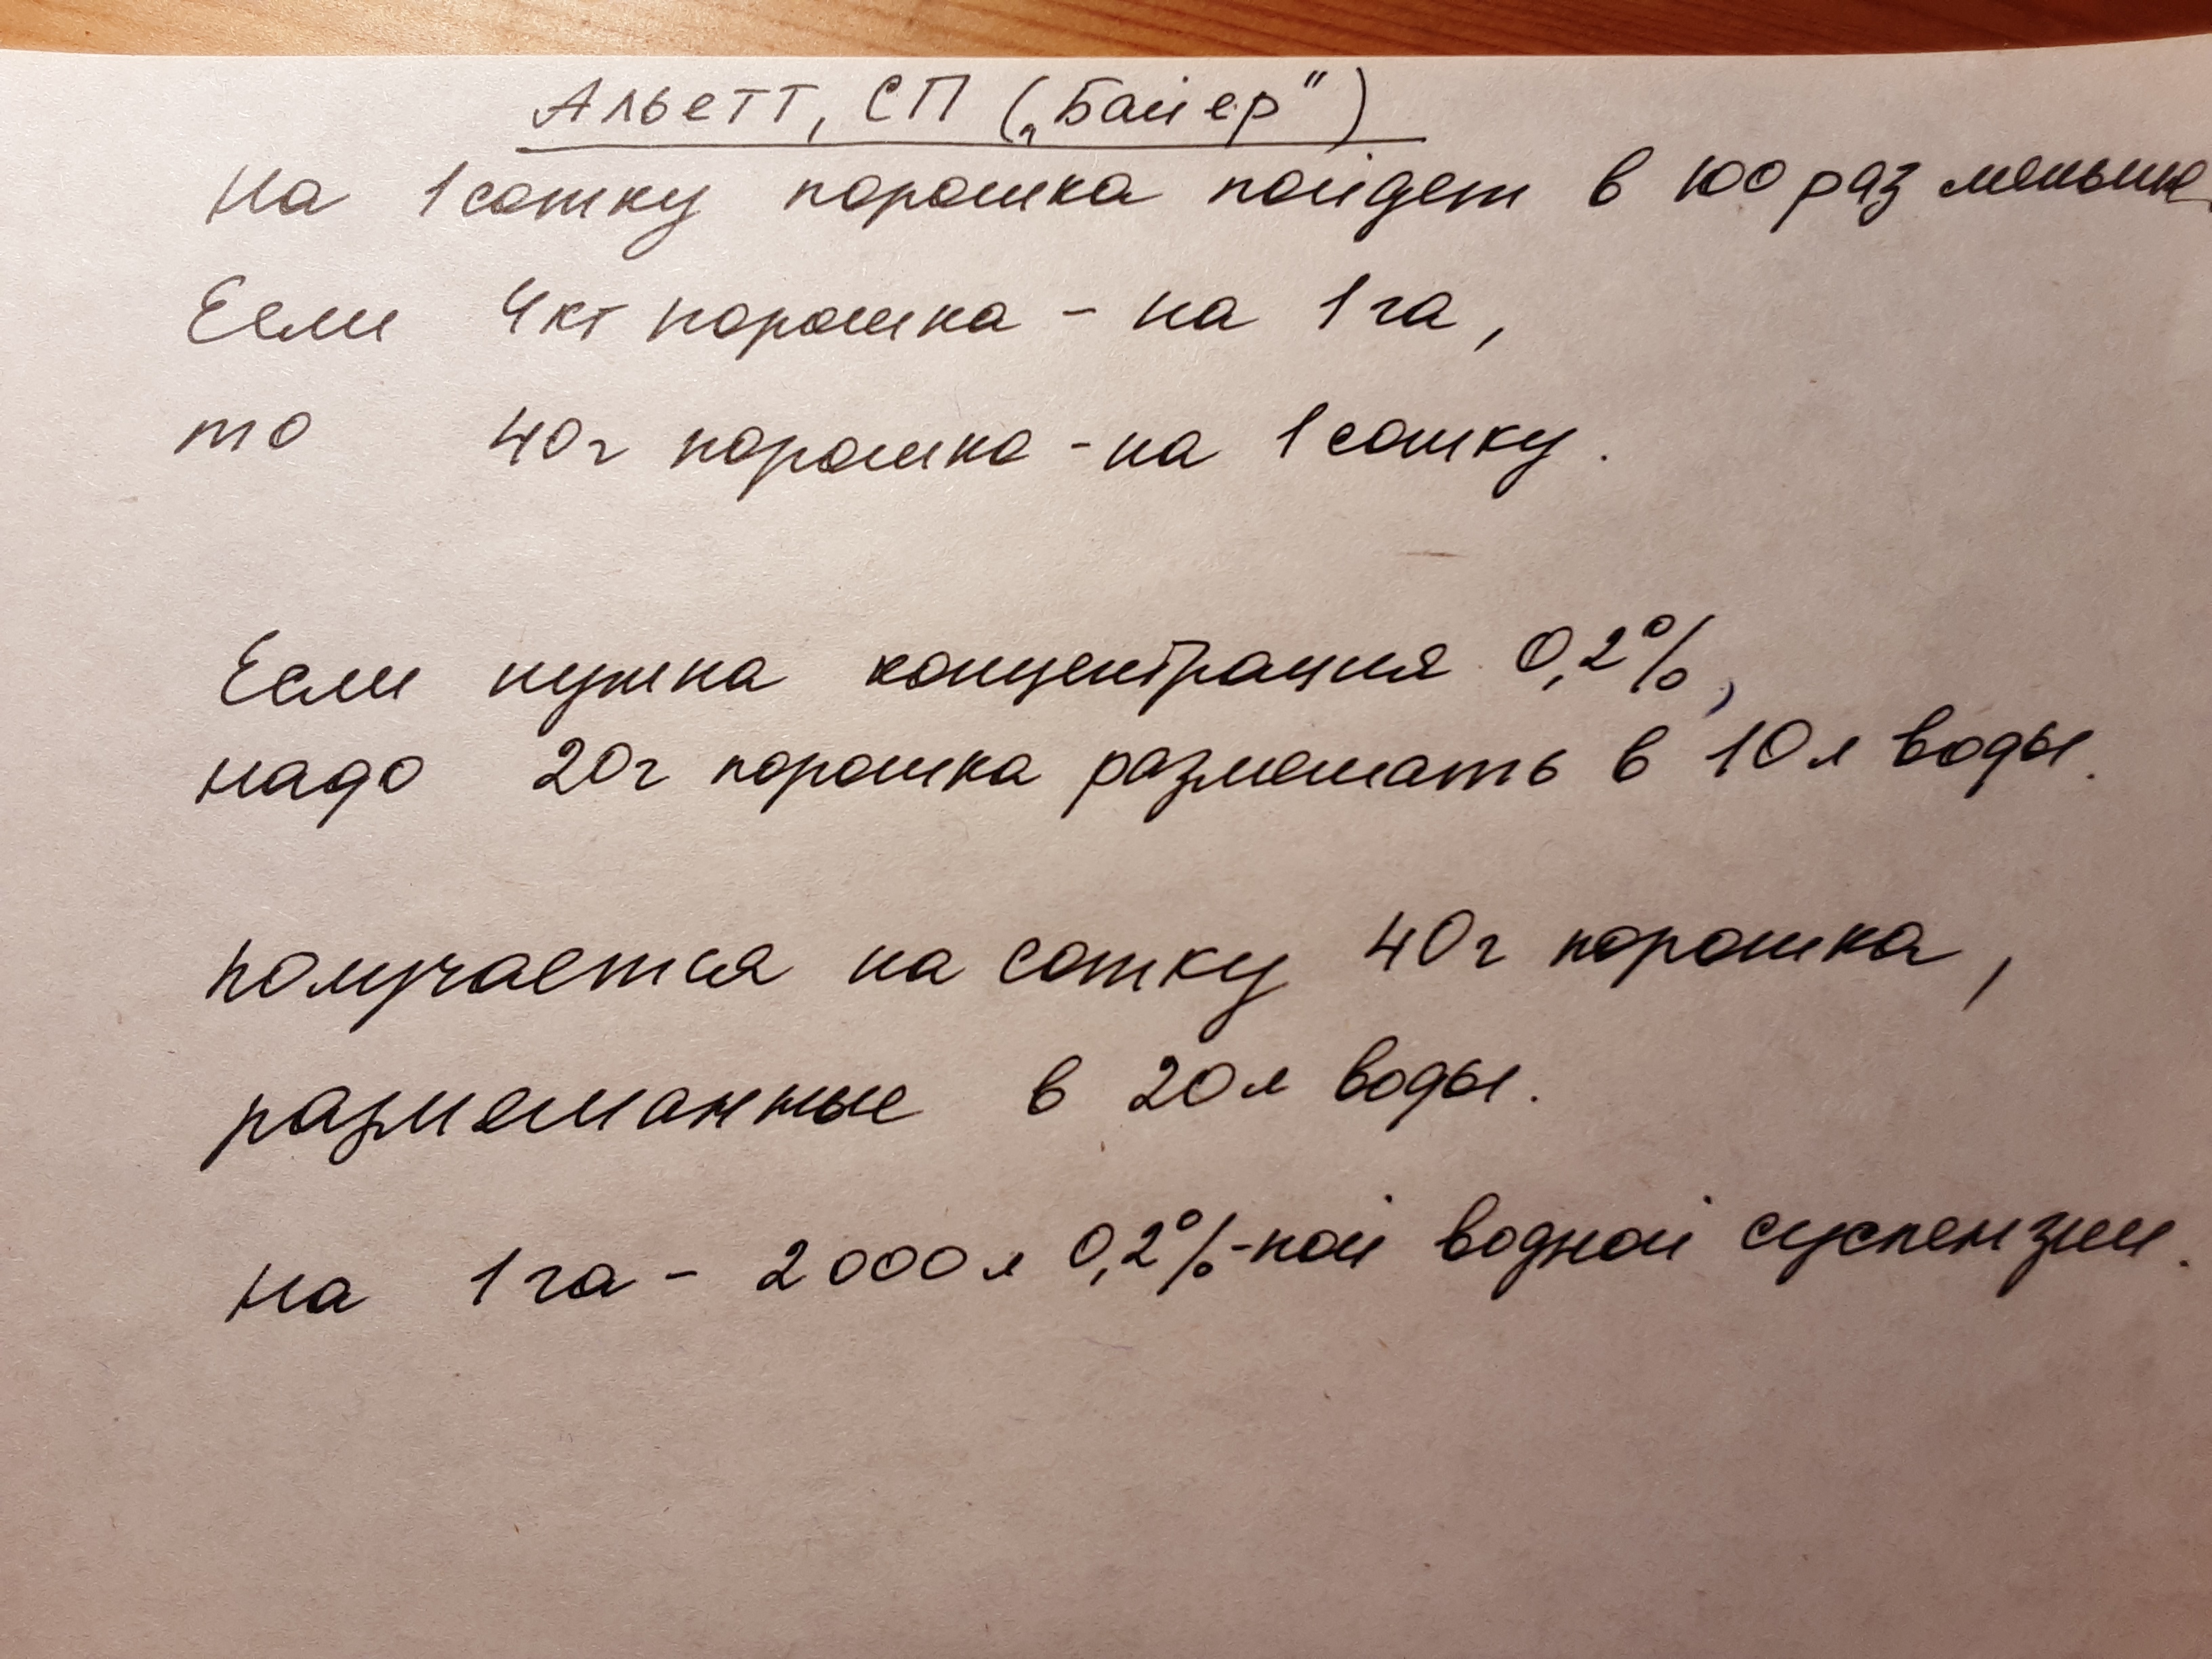 Альетт, СП („Байер")
на 1 сотку порошка пойдет в 100 раз меньше
Если 4кг порошка - на 1 га,
то 40г порошка - на 1 сотку.
Если нужна концентрация 0,2%,
надо 20г порошка размешать в 10л воды.
получается на сотку 40г порошка,
размешанные в 20л воды.
на 1 га - 2000л 0,2%-ной водной суспензии.